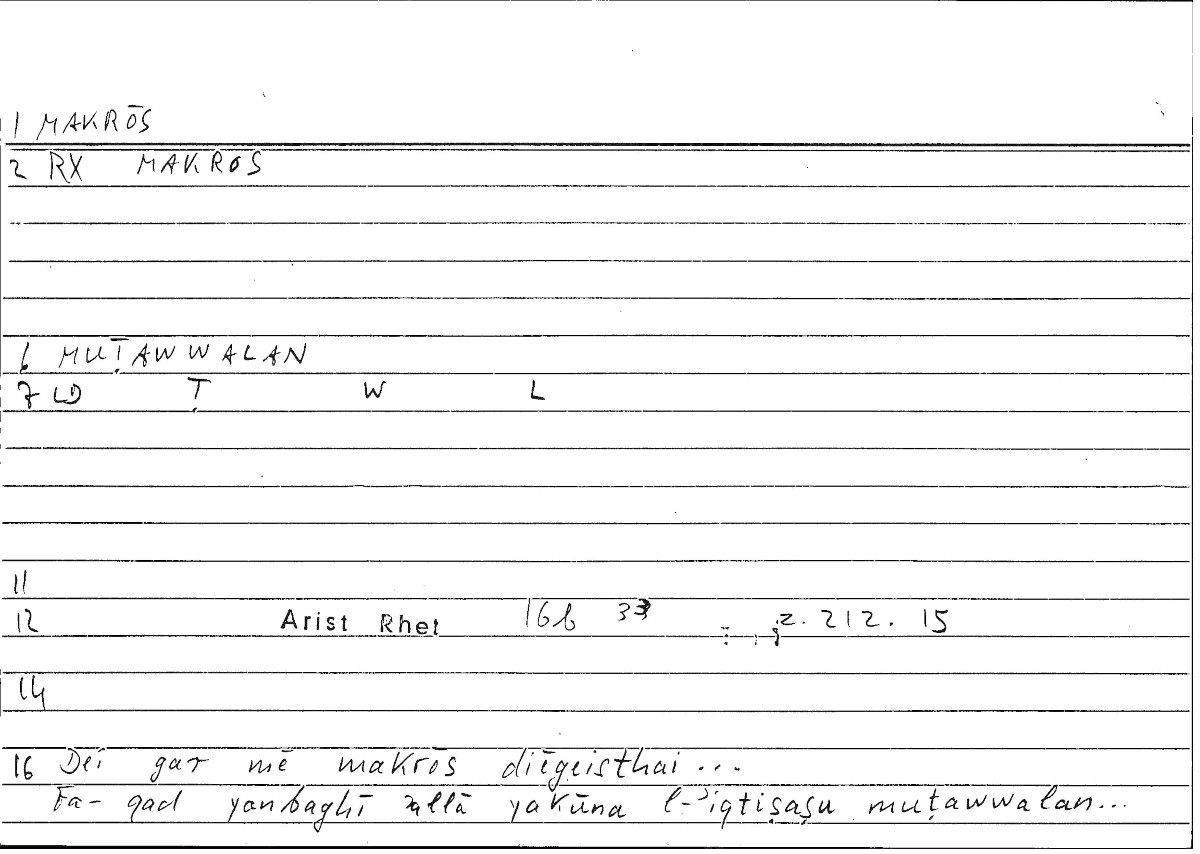 1 MAKRŌS
2 RX MAKROS
6 MUṬAWWALAN
7 LD Ṭ W L
11
12 Arist Rhet 16b 33 2. 212. 15
14
16 Dei gar mē makrōs diēgeisthai ...
Fa- qad yanbaghī allā yakūna l-ʾiqtiṣaṣu muṭawwalan...